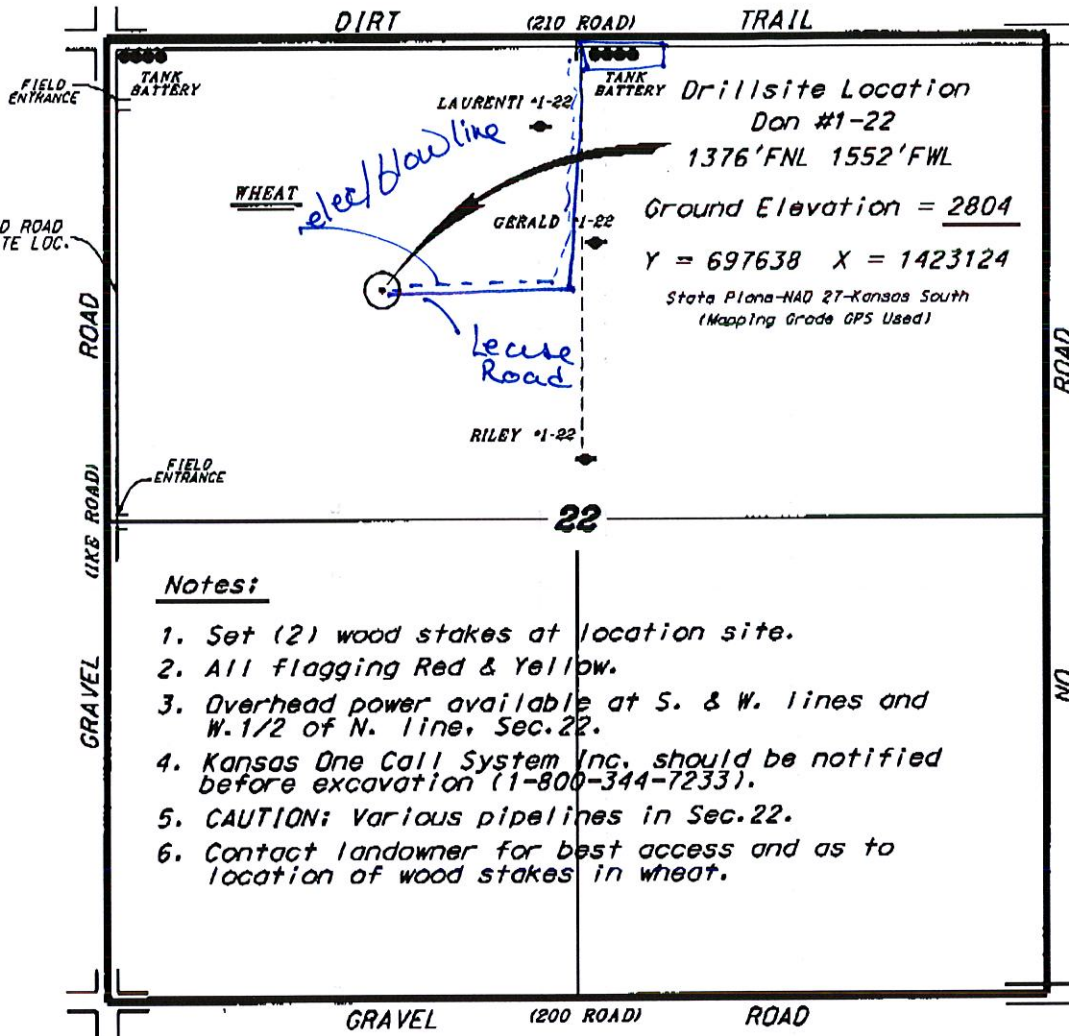 DIRT (210 ROAD) TRAIL
TANK
BATTERY
FIELD
ENTRANCE
TANK
BATTERY
LAURENTI #1-22
Drillsite Location
Don #1-22
1376'FNL 1552'FWL
elec/flow line
WHEAT
GERALD #1-22
Ground Elevation = 2804
Y = 697638 X = 1423124
State Plane-NAD 27-Kansas South
(Mapping Grade GPS Used)
D ROAD
TE LOC.
ROAD
Lease
Road
ROAD
RILEY #1-22
FIELD
ENTRANCE
(IKE ROAD)
22
Notes:
1. Set (2) wood stakes at location site.
2. All flagging Red & Yellow.
3. Overhead power available at S. & W. lines and
W.1/2 of N. line, Sec.22.
4. Kansas One Call System Inc. should be notified
before excavation (1-800-344-7233).
5. CAUTION: Various pipelines in Sec.22.
6. Contact landowner for best access and as to
location of wood stakes in wheat.
GRAVEL
NO
GRAVEL (200 ROAD) ROAD